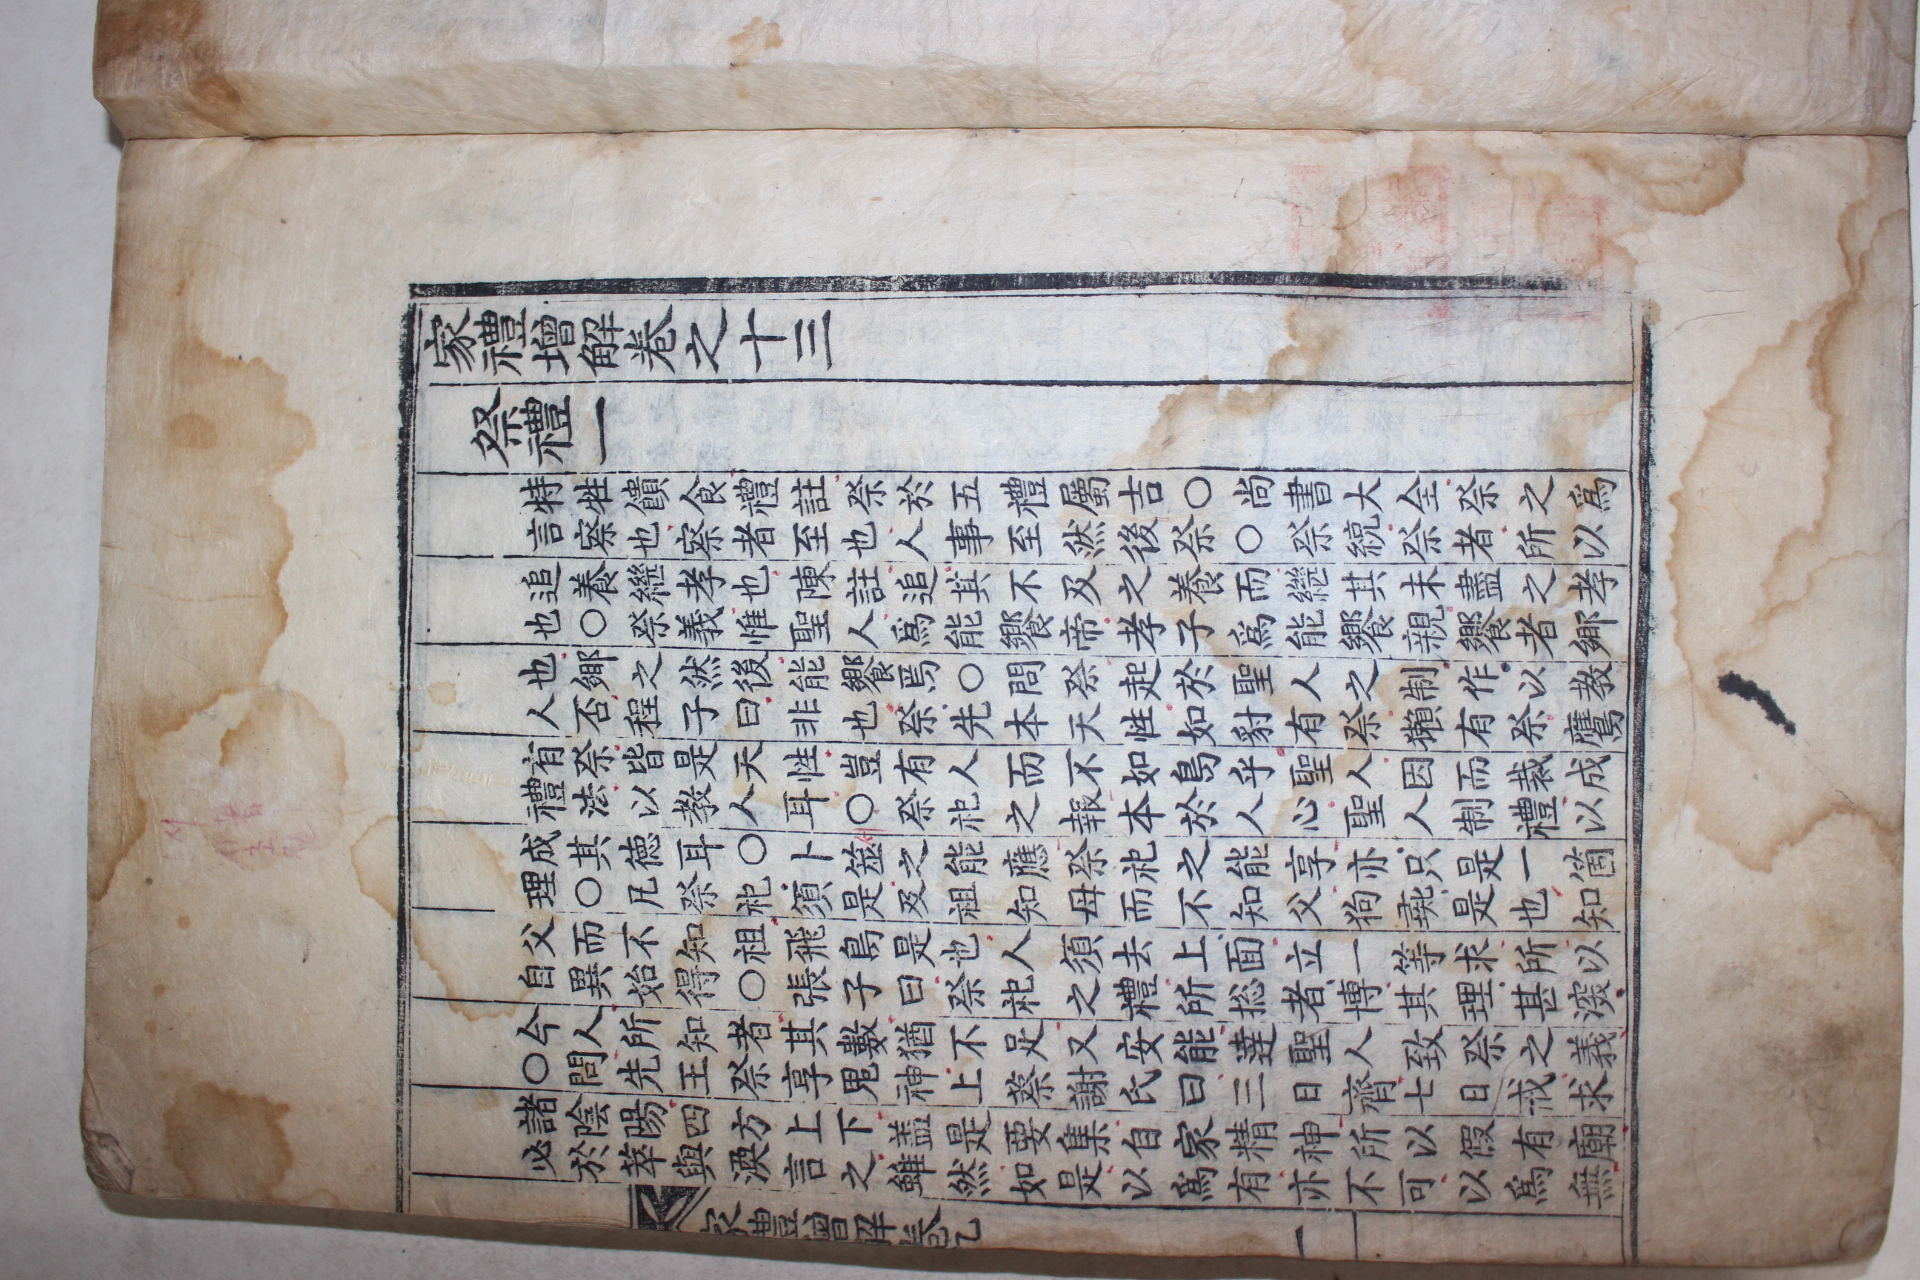 家禮增解卷之十三
祭禮一
特牲饋食禮註祭於五禮屬吉○尚書大全祭之爲
言察也察者至也人事至然後祭○祭統祭者所以
追養繼孝也陳註追其不及之養而繼其未盡之孝
也○祭義惟聖人爲能饗帝孝子爲能饗親饗者鄉
也鄉之然後能饗焉○問祭起於聖人之制作以教
人否程子曰非也祭先本天性如豺有祭獺有祭鷹
有祭皆是天性豈有人而不如鳥乎聖人因而裁成
禮法以教人耳○祭祀之報本於人心聖人制禮以
成其德耳○卜筮之能應祭祀之能享亦只是一箇
理○凡祭祀須是及祖知母而不知父狗彘是也知
父而不知祖飛鳥是也人須去上面立一等求所以
自異始得○張子曰祭祀之禮所総者博其理甚深
今人所知者其數猶不足又安能達聖人致祭之義
○問先王祭享鬼神上蔡謝氏曰三日齊七日戒求
諸陰陽四方上下盖是要集自家精神所以假有廟
必於萃與渙言之雖然如是以爲有亦不可以爲無
家禮增解卷九
一